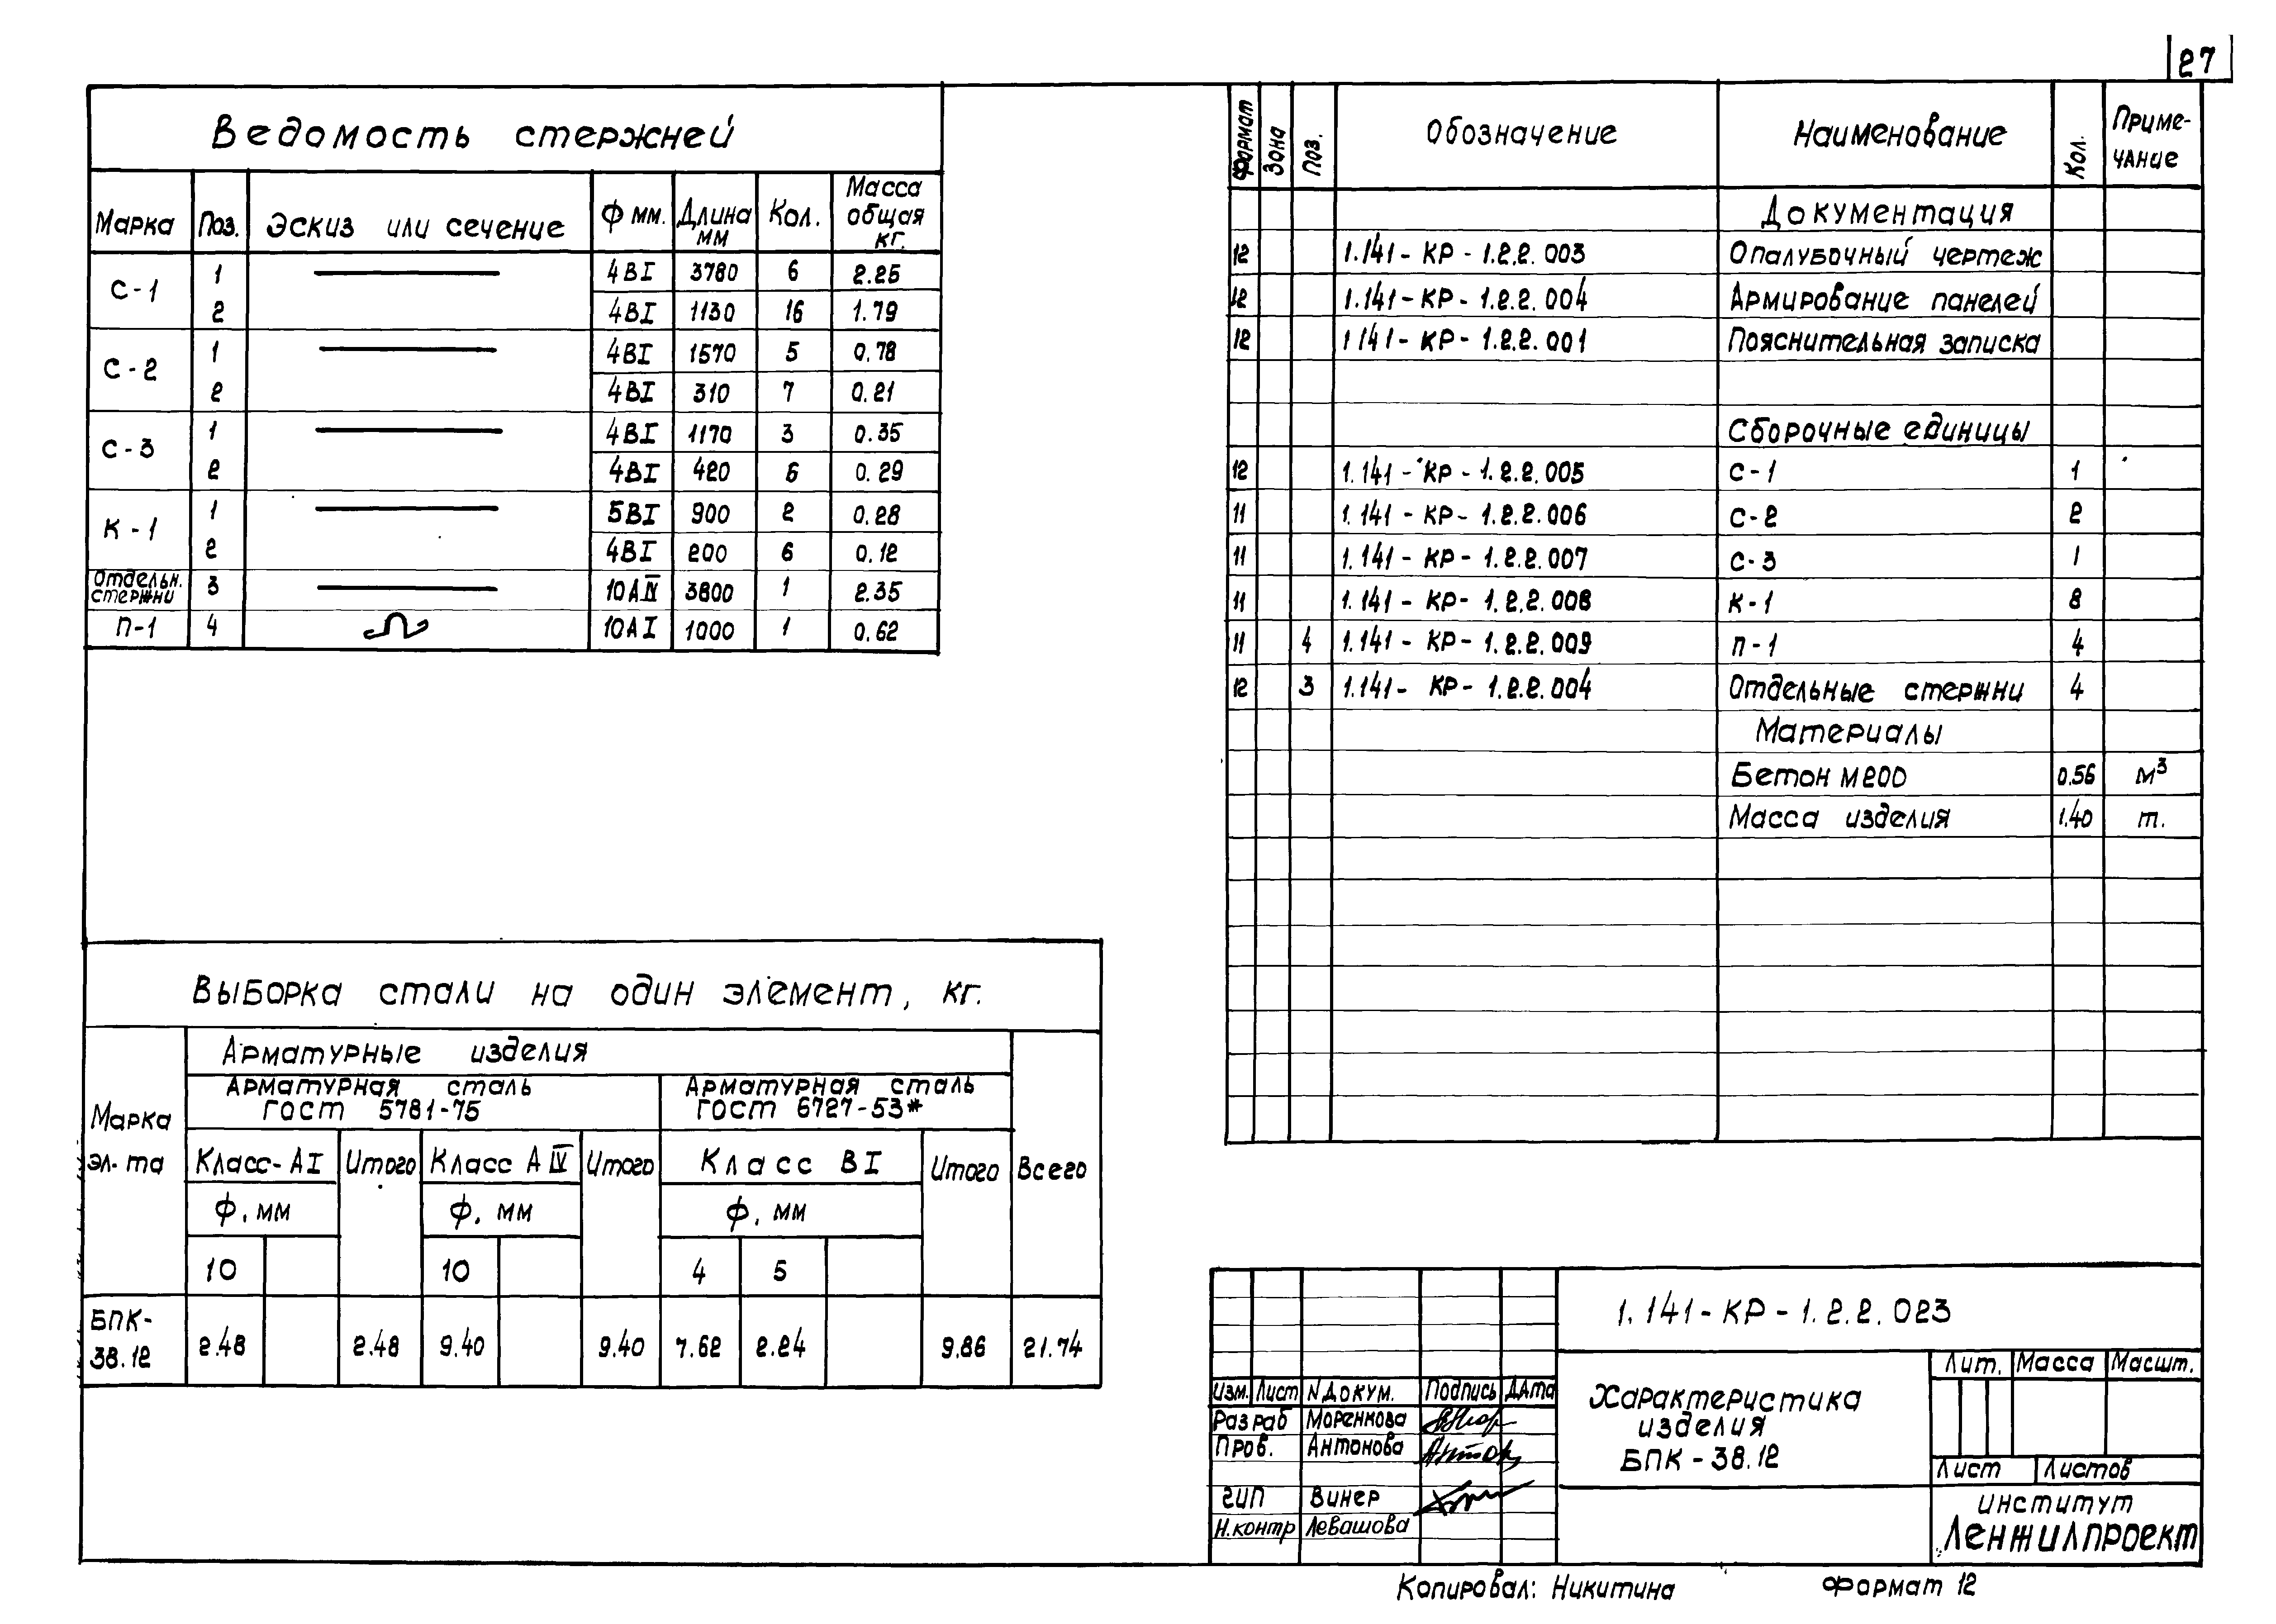 27
Ведомость стержней
Марка Поз. Эскиз или сечение Ф мм. Длина мм Кол. Масса общая кг.
С-1 1 4ВI 3780 6 2.25
2 4ВI 1130 16 1.79
С-2 1 4ВI 1570 5 0.78
2 4ВI 310 7 0.21
С-3 1 4ВI 1170 3 0.35
2 4ВI 420 6 0.29
К-1 1 5ВI 900 2 0.28
2 4ВI 200 6 0.12
Отдельн. стержни 3 10АIV 3800 1 2.35
П-1 4 10АI 1000 1 0.62
Выборка стали на один элемент, кг.
Марка эл-та
Арматурные изделия
Арматурная сталь ГОСТ 5781-75
Арматурная сталь ГОСТ 6727-53*
Класс-АI Итого Класс АIV Итого Класс ВI Итого Всего
Ф, мм Ф, мм Ф, мм
10 10 4 5
БПК-38.12 2.48 2.48 9.40 9.40 7.62 2.24 9.86 21.74
Формат Зона Поз. Обозначение Наименование Кол. Приме-чание
Документация
12 1.141-КР-1.2.2.003 Опалубочный чертеж
12 1.141-КР-1.2.2.004 Армирование панелей
12 1 141-КР-1.2.2.001 Пояснительная записка
Сборочные единицы
12 1.141-КР-1.2.2.005 С-1 1
11 1.141-КР-1.2.2.006 С-2 2
11 1.141-КР-1.2.2.007 С-3 1
11 1.141-КР-1.2.2.008 К-1 8
11 4 1.141-КР-1.2.2.009 П-1 4
12 3 1.141-КР-1.2.2.004 Отдельные стержни 4
Материалы
Бетон М200 0.56 м³
Масса изделия 1.40 т.
1.141-КР-1.2.2.023
Изм. Лист N докум. Подпись Дата
Разраб Моренкова
Пров. Антонова
ГИП Винер
Н.контр Левашова
Характеристика
изделия
БПК-38.12
Лит. Масса Масшт.
Лист Листов
институт
Ленжилпроект
Копировал: Никитина Формат 12